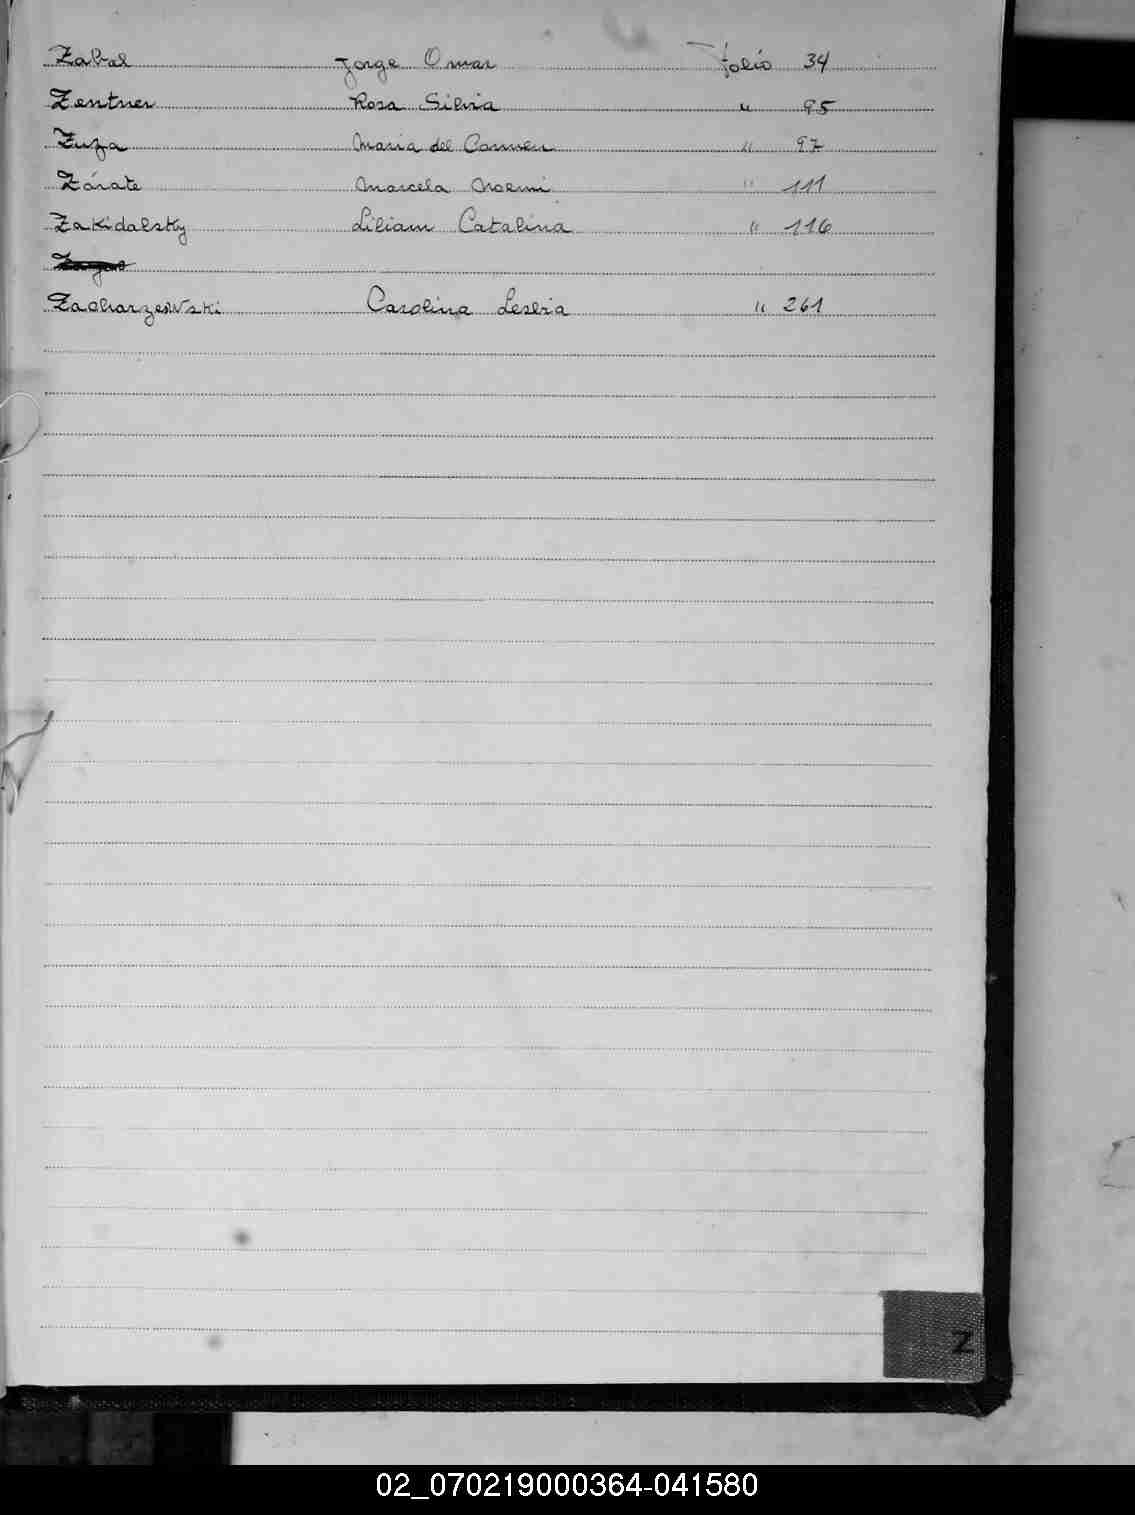 Zabal Jorge Omar Folio 34
Zentner Rosa Silvia " 95
Zuza Maria del Carmen " 97
Zárate Marcela Noemi " 111
Zakidalsky Liliam Catalina " 116
Zacharzewski Carolina Lesbia " 261
Z
02_070219000364-041580